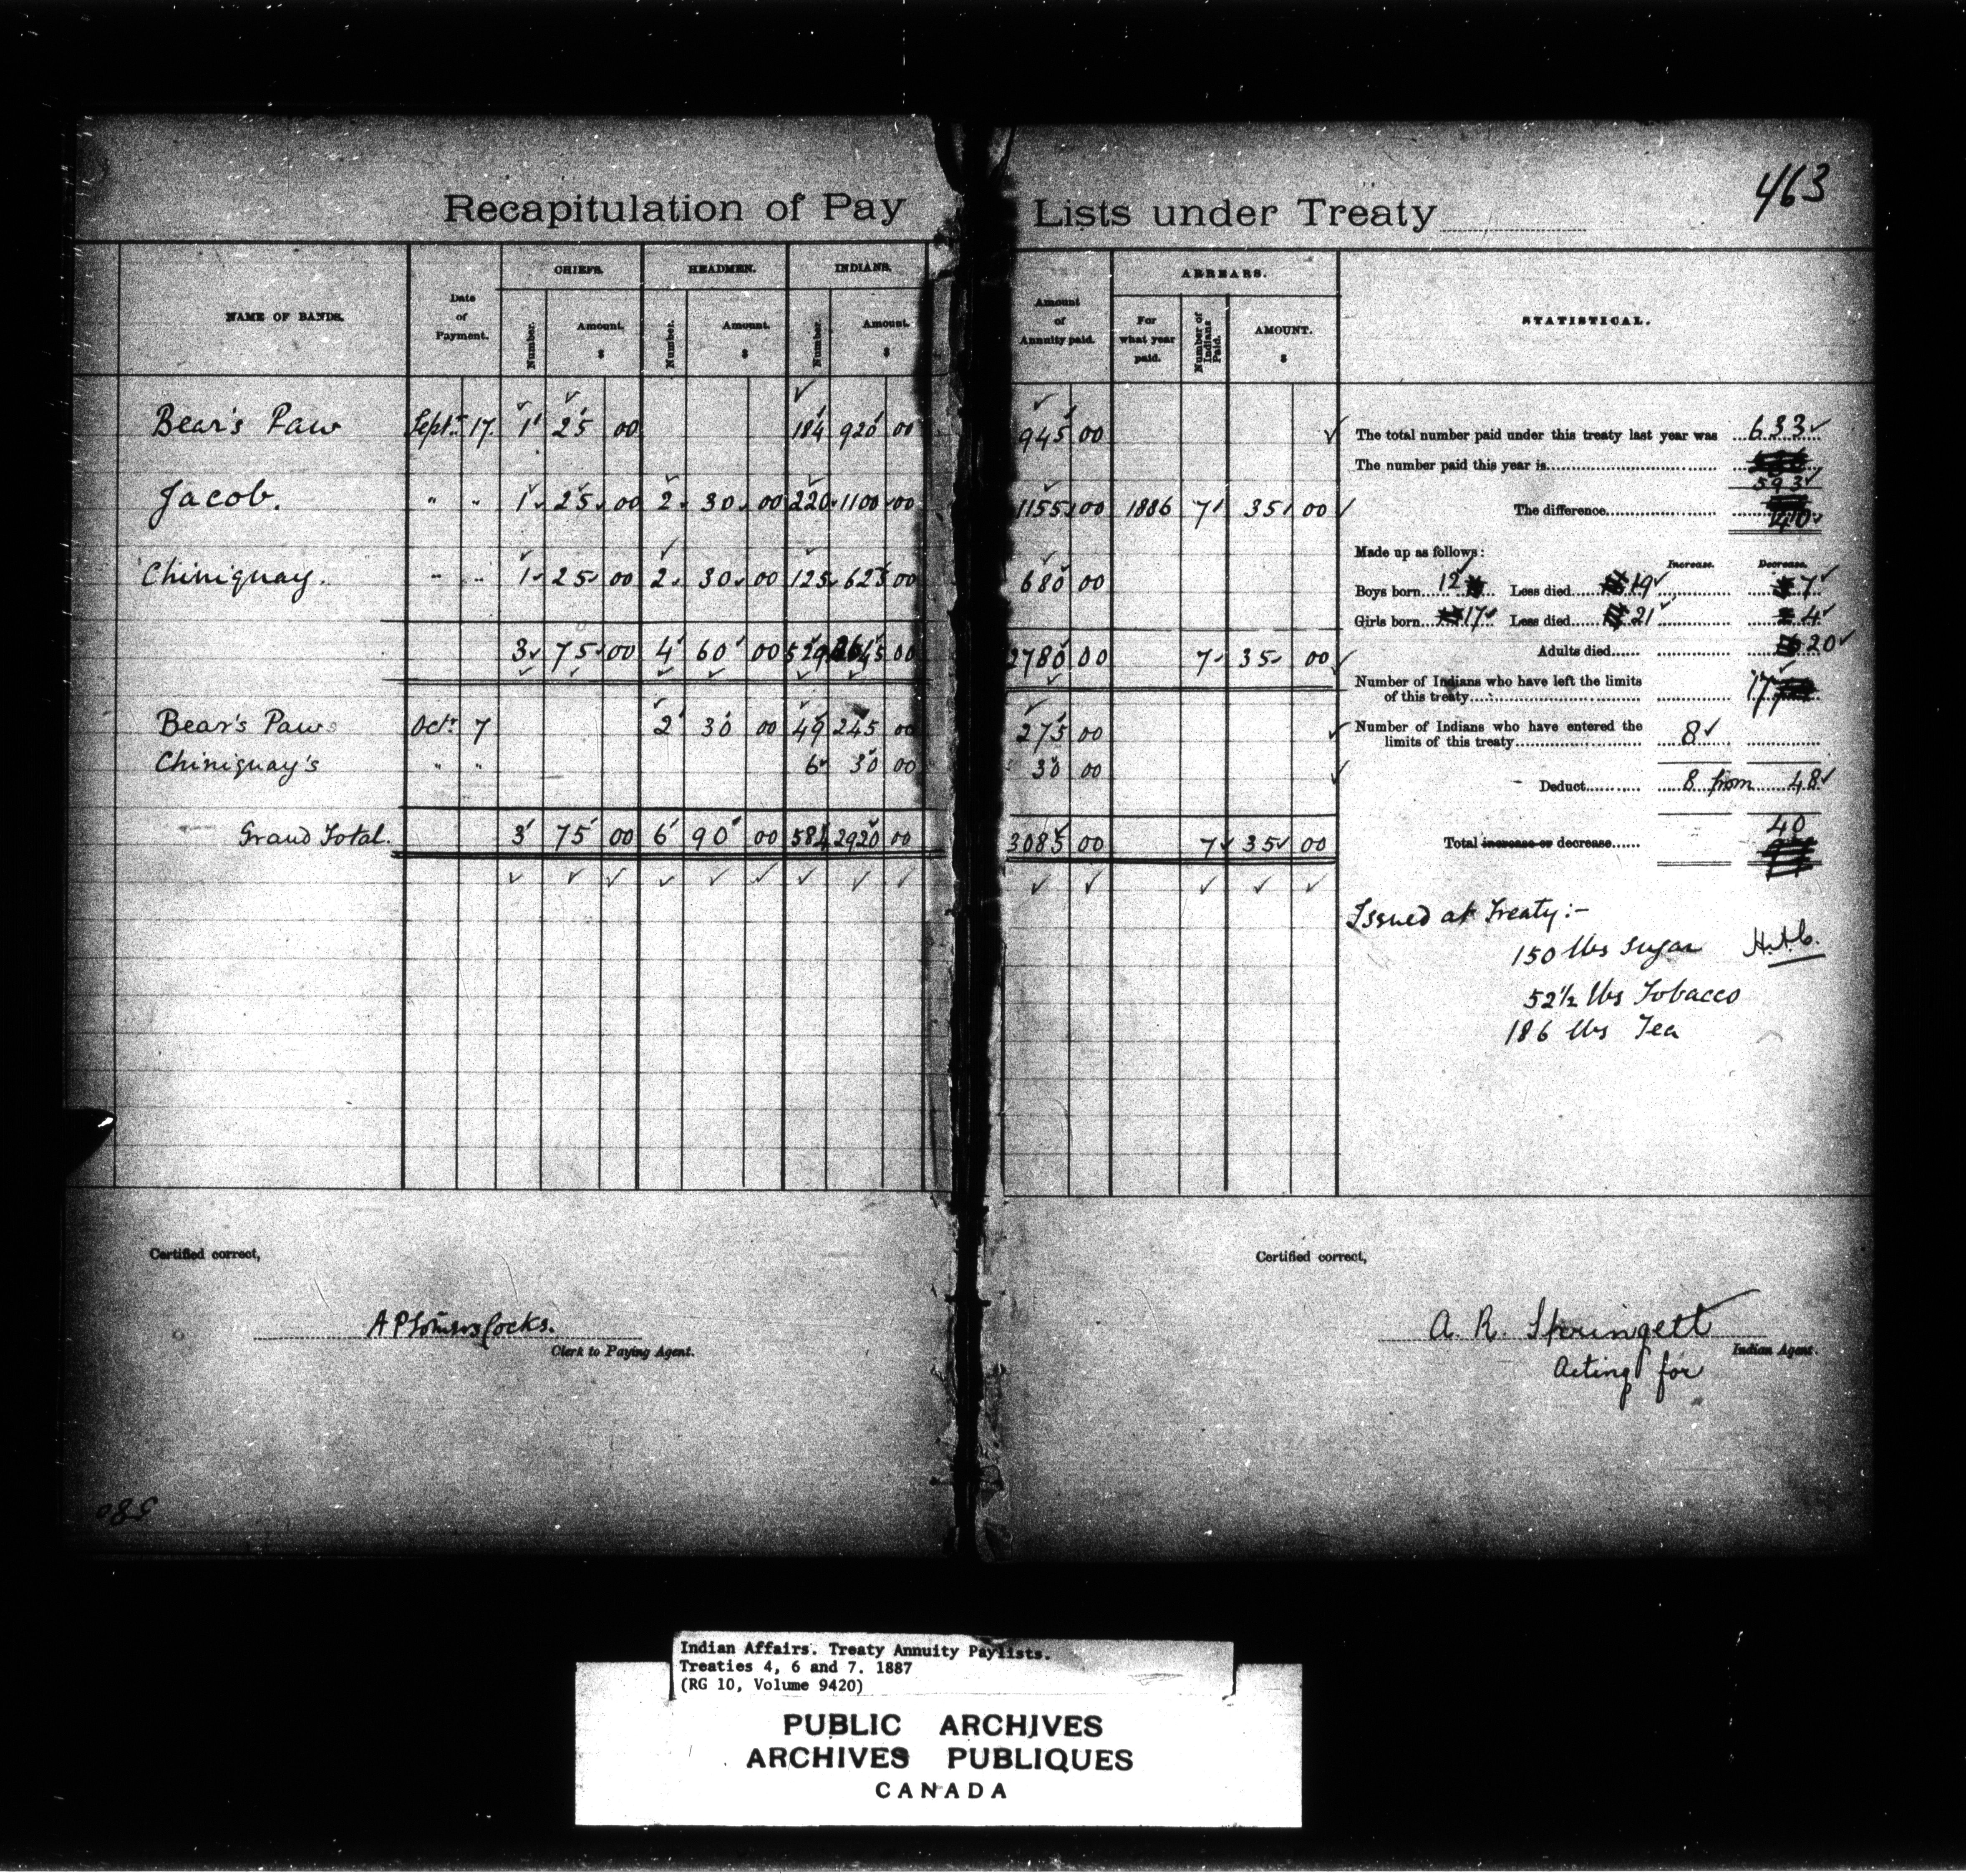 463
Recapitulation of Pay Lists under Treaty
NAME OF BANDS. Date of Payment. CHIEFS. HEADMEN. INDIANS. Amount of Annuity paid. ARREARS. STATISTICAL.
Number. Amount. $ Number. Amount. $ Number. Amount. $ For what year paid. Number of Indians Paid. AMOUNT. $
Bear's Paw Sept. 17 1 25 00 184 920 00 945 00
Jacob. " " 1 25 00 2 30 00 220 1100 00 1155 00 1886 7 35 00
Chiniquay. " " 1 25 00 2 30 00 125 625 00 680 00
3 75 00 4 60 00 529 2645 00 2780 00 7 35 00
Bear's Paws Octr 7 2 30 00 49 245 00 275 00
Chiniquay's " " 6 30 00 30 00
Grand Total. 3 75 00 6 90 00 584 2920 00 3085 00 7 35 00
The total number paid under this treaty last year was 633
The number paid this year is 593
The difference 40
Made up as follows:
Increase. Decrease.
Boys born 12 Less died 19 7
Girls born 17 Less died 21 4
Adults died 20
Number of Indians who have left the limits
of this treaty 17
Number of Indians who have entered the
limits of this treaty 8
Deduct 8 from 48
40
Total increase or decrease
Issued at Treaty:-
150 lbs Sugar
52½ lbs Tobacco
186 lbs Tea
Certified correct,
Clerk to Paying Agent.
Certified correct,
A. R. Springett
Indian Agent.
Acting for
580
Indian Affairs. Treaty Annuity Paylists.
Treaties 4, 6 and 7. 1887
(RG 10, Volume 9420)
PUBLIC ARCHIVES
ARCHIVES PUBLIQUES
CANADA